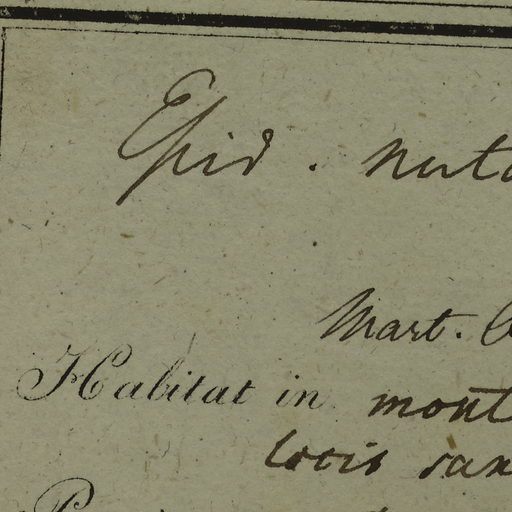 Epid. nuta
Mart.
Habitat in mont
locis sax